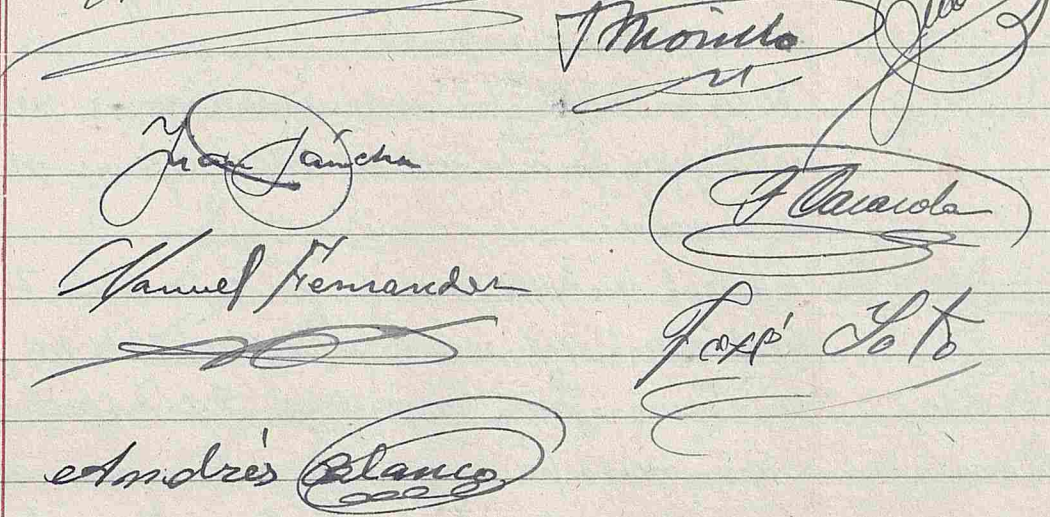 Morillo
Juan Sánchez
Manuel Fernandez
José Soto
Andrés Blanco